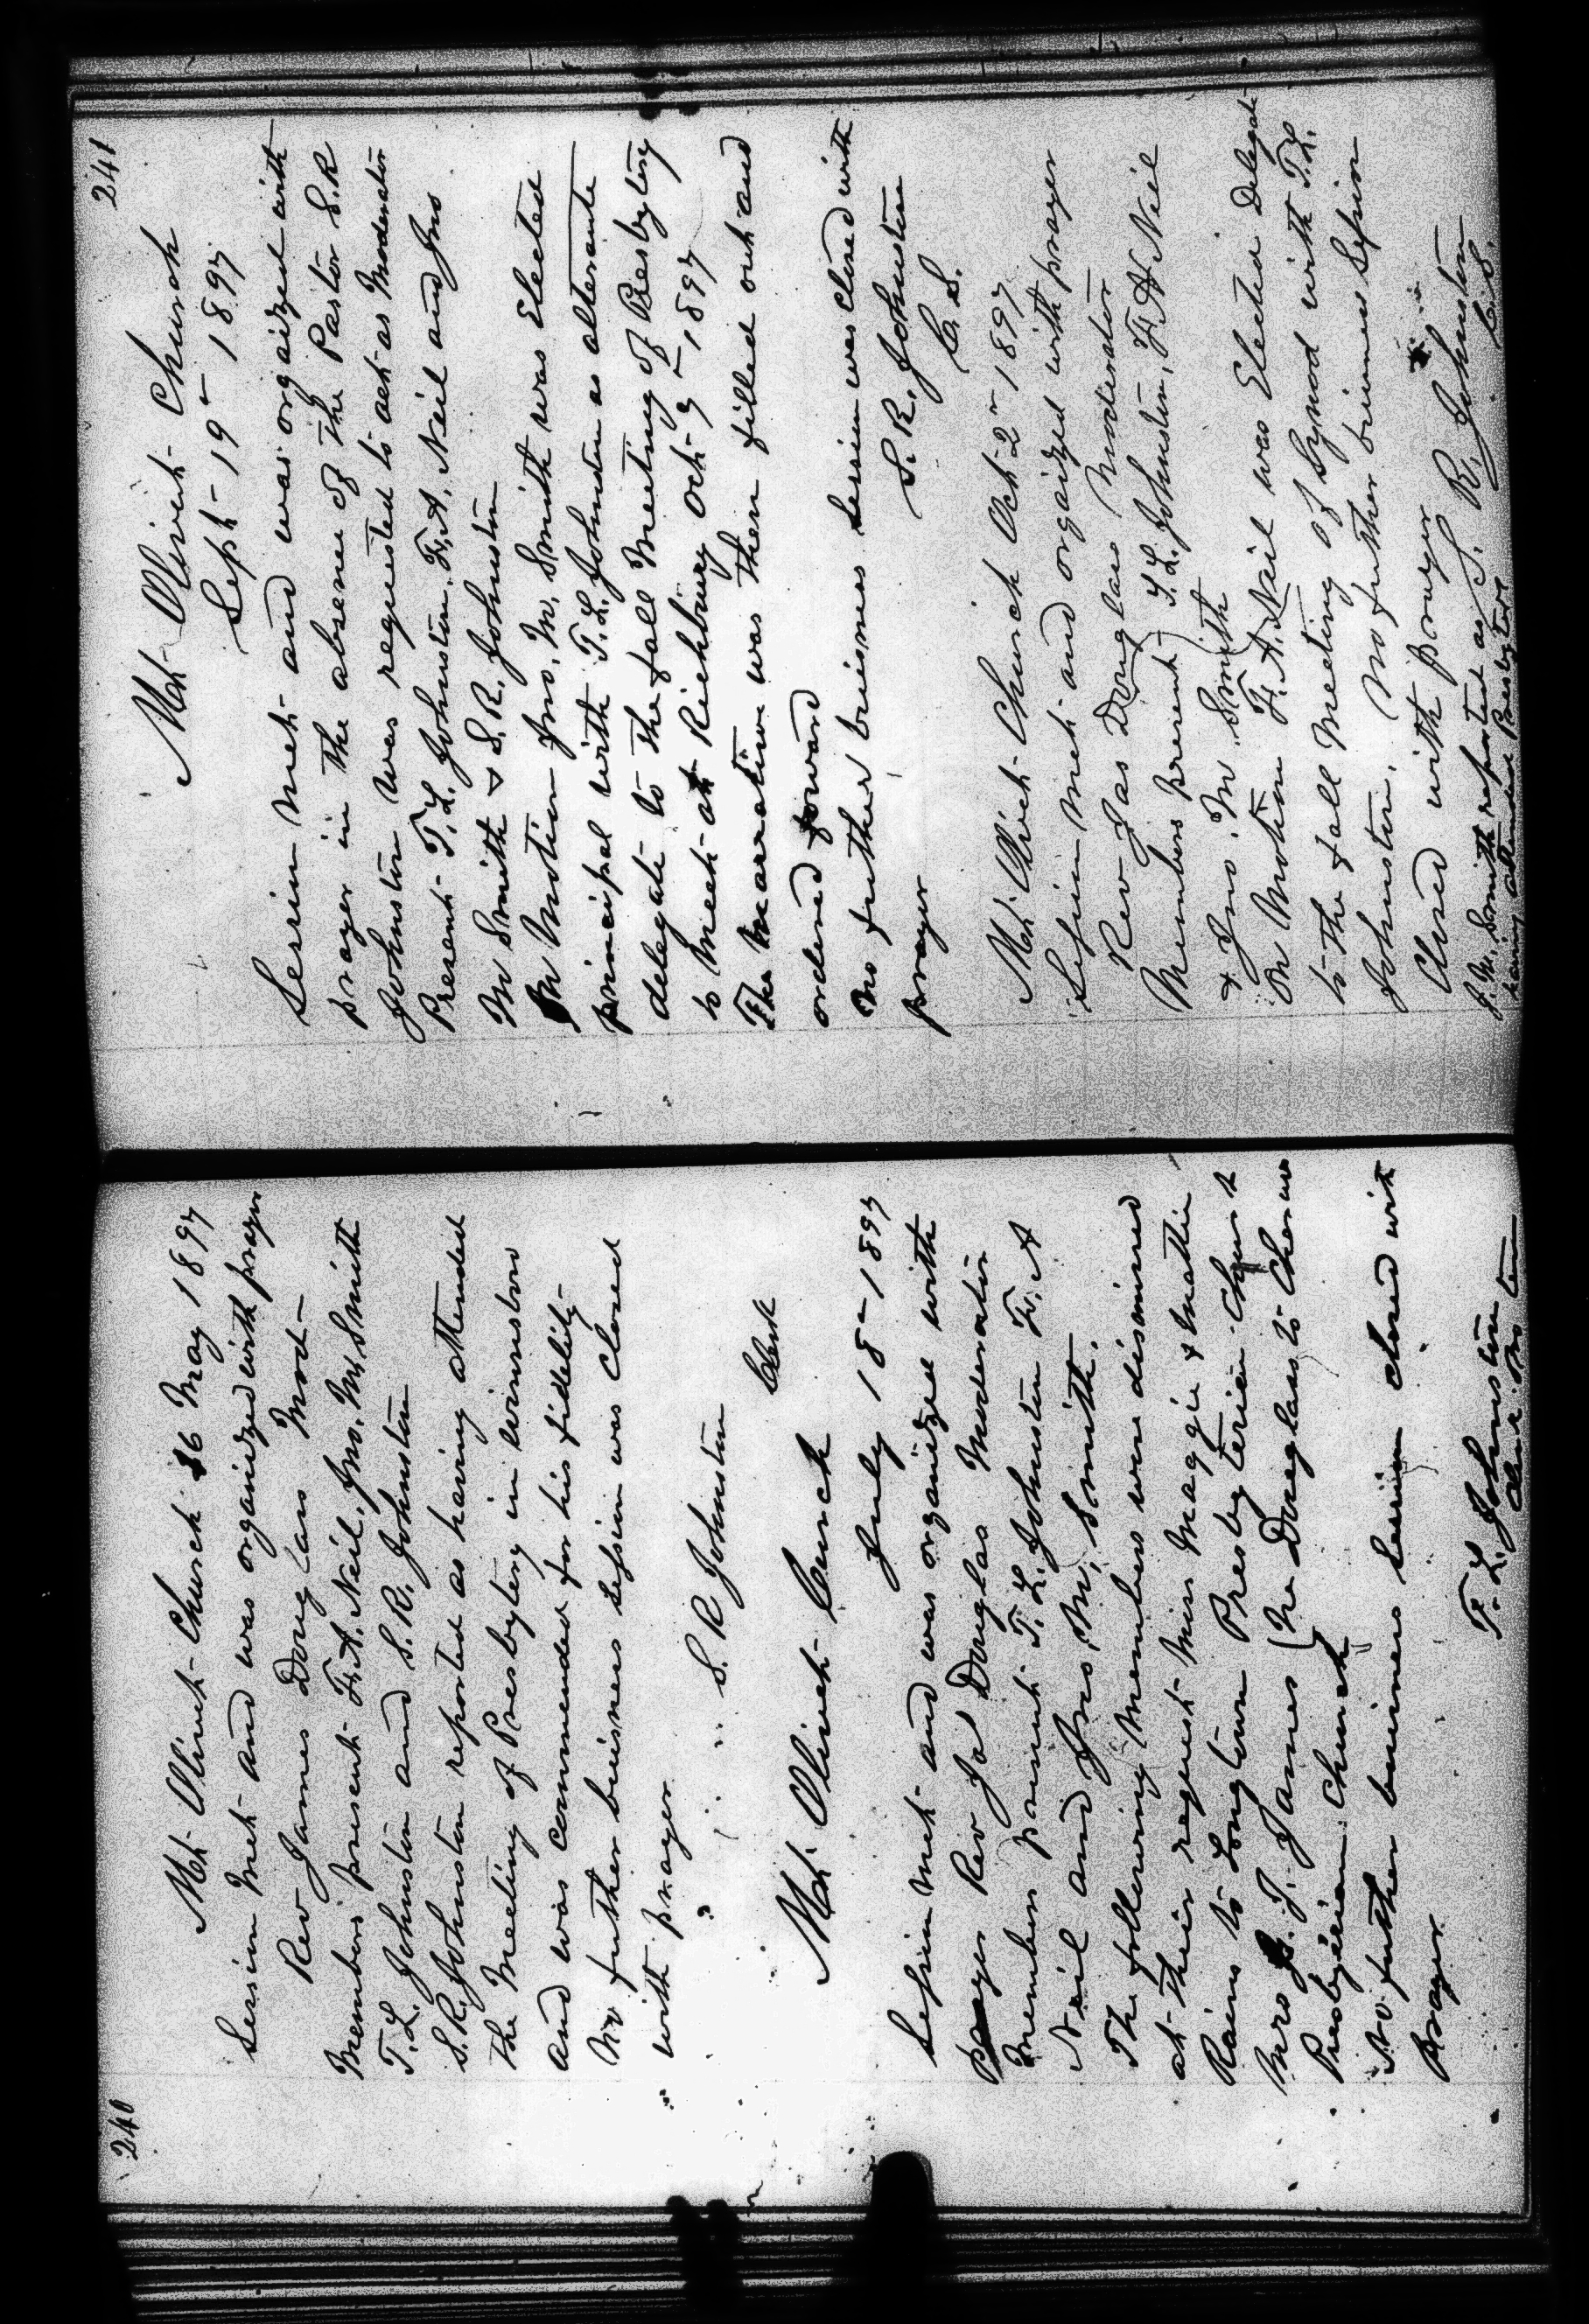 240
Mt Olivet Church 16 May 1897
Session Met and was organized with prayer
Rev James Douglas Mod-
Members present F. A. Neil, Jno. M. Smith
T. L. Johnston and S. R. Johnston
S. R. Johnston reported as having attended
the Meeting of Presbytery in Winnsboro
and was commended for his fidelity-
No futher buisness Session was Closed
with prayer
S. R Johnston
Clerk
Mt Olivet Curch
July 18- 1897
Session Met and was organized with
prayer Rev Jas Douglas Moderator
Members present T. L. Johnston F. A
Neil and Jno. M. Smith.
The following Members were dismissed
at their request Miss Maggie & Mattie
Rains to Longtown Presbyterian Church
Mrs J. J. James (Ne Douglas) to Cheraw
Presbyterian Church
No futher business Session closed with
Prayer
T. L. Johnston
Clerk Pro tem
241
Mt Olivet Church
Sept- 19- 1897
Session Met and was orgaized with
prayer in the absence of the Pastor S. R
Johnston was requested to act as Moderator
Present T. L. Johnston. F. A. Neil and Jno
M Smith & S. R. Johnston
On Motion Jno. M. Smith was Elected
principal with T. L. Johnston as alternate
delegate to the fall Meeting of Presbytery
to Meet at Richburg Oct 9- 1897
The Narrative was then filled out and
ordered forward
No futher buisness Session was closed with
prayer
S. R. Johnston
C. S.
Mt Olivet Church Oct 2- 1897
Session Met and orgaized with prayer
Rev Jas Douglas Moderator
Members present) T. L. Johnston, F. A Neil
& Jno. M Smith
On Motion F. A. Neil was Elected Delegate
to the fall Meeting of Synod with T. L.
Johnston. No futher buisness Session
Closed with prayer
J. M. Smith reported as S. R. Johnston
having attended Presbytery C. S.